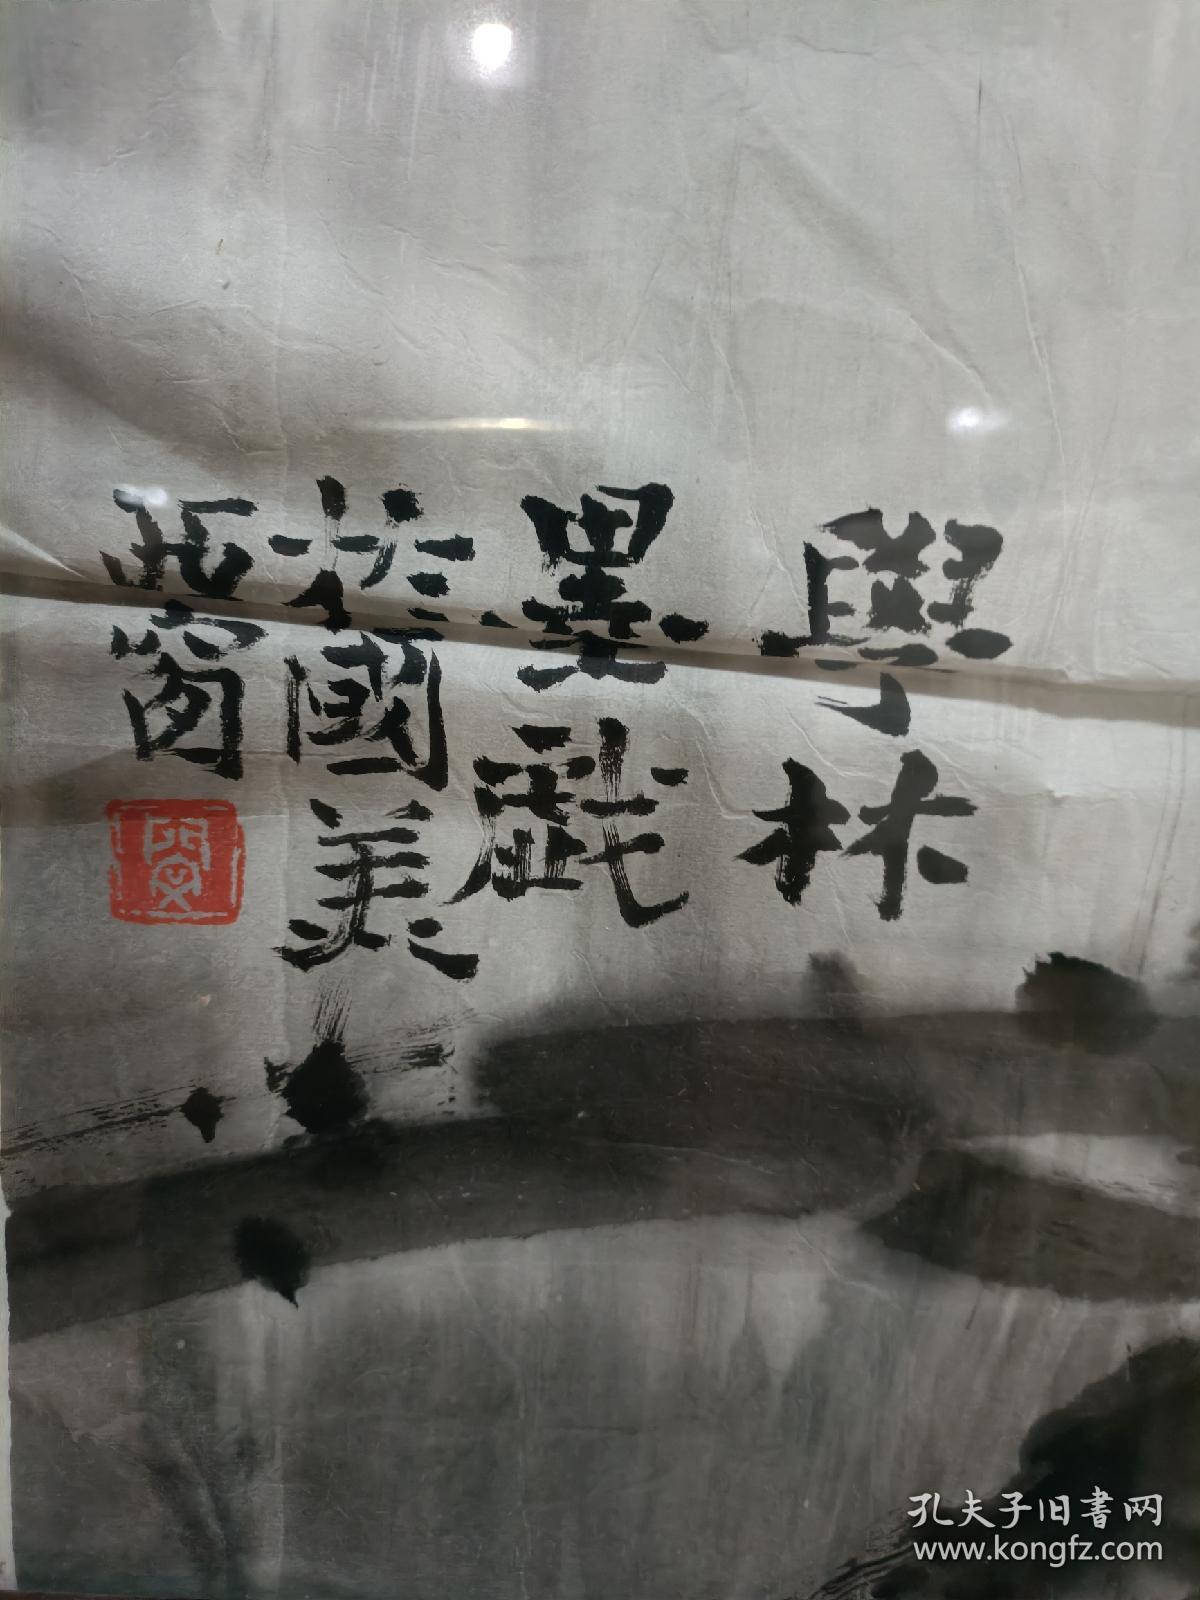 學林
墨戲
於國美
西窗
孔夫子旧書网
www.kongfz.com